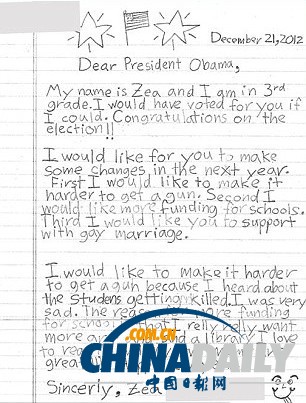 December 21, 2012
Dear President Obama,
My name is Zea and I am in 3rd
grade. I would have voted for you if
I could. Congratulations on the
election!!
I would like for you to make
some changes in the next year.
First I would like to make it
harder to get a gun. Second I
would like more funding for schools.
Third I would like you to support
with gay marriage.
I would like to make it harder
to get a gun because I heard about
the studens getting killed. I was very
sad. The reas more funding
for school that I relly relly want
more a a library I love
to rea
grea
Sincerly, Zea
.COM.CN
CHINADAILY
中国日报网